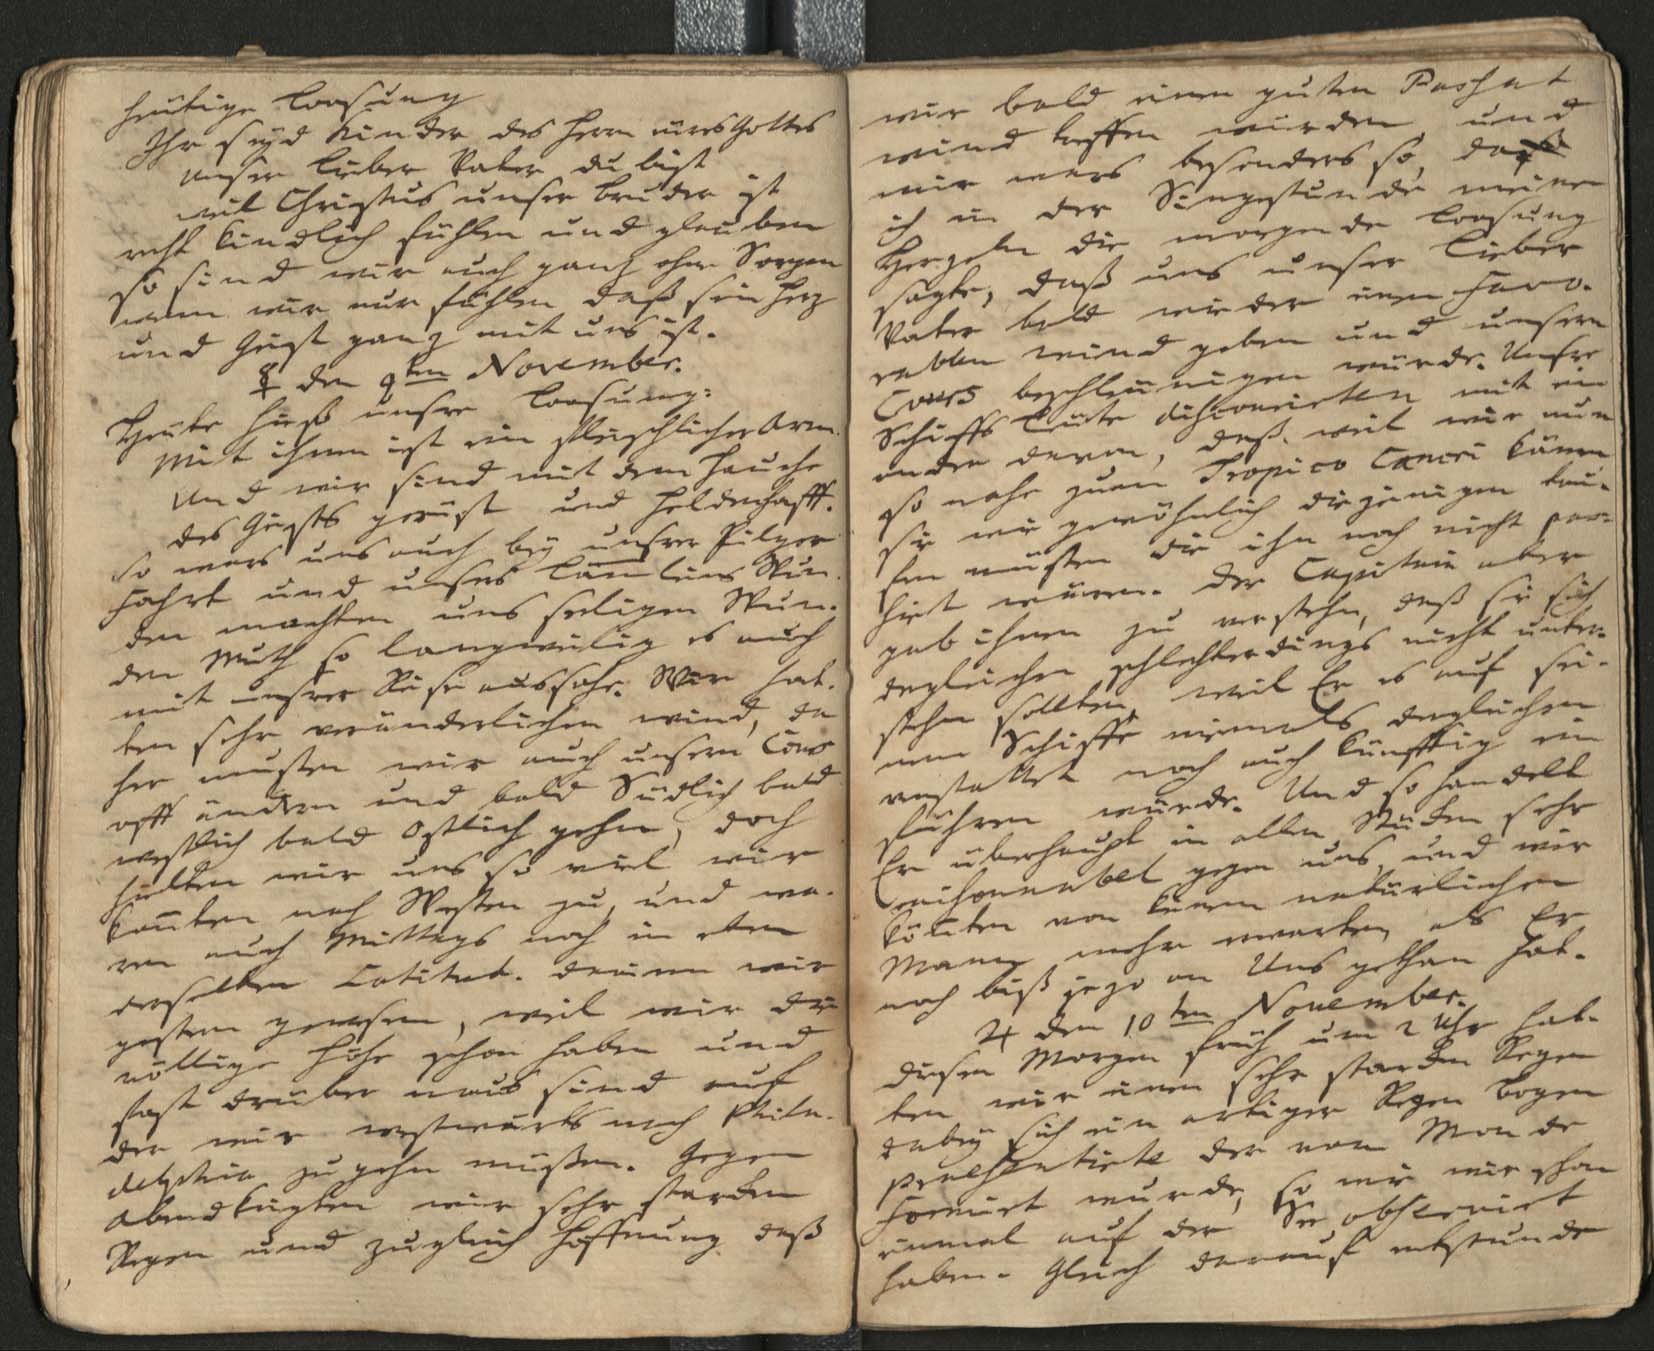 heütige Loosung
Ihr seÿd Kinder des Herrn eures Gottes
unser lieber Vater du bist
weil Christus unser Bruder ist
recht kindlich fühlen und glauben
so sind wir auch ganz ohne Sorgen
wenn wir nur fühlen daß sein Herz
und Geist ganz mit uns ist.
☿ den 9ten November.
Heute hieß unsre Loosung:
Mit ihnen ist ein fleischlicher Arm.
Und wir sind mit dem Hauche
des Geists gerüst und heldenhafft.
so wars uns auch beÿ unsrer Pilger
Fahrt und unsers Lämleins Wun-
den machten uns seligen Wun-
den Muth so langweilig es auch
mit unsrer Reise aussahe. Wir hat-
ten sehr veränderlichen wind, da
her musten wir auch unsern Cours
offt ändern und bald Südlich bald
westlich bald Ostlich gehn, doch
hielten wir uns so viel wir
konten nach Westen zu, und wa-
ren auch Mittags noch in eben
derselben Latitut. darinn wir
gestern gewesen, weil wir die
völlige Höhe schon haben und
fast drüber naus sind auf
der wir westwärts nach Phila-
delphia zu gehn müßen. Gegen
Abend kriegten wir sehr starcken
Regen und zugleich Hoffnung daß
wir bald einen guten Pashat
wind treffen würden, und
mir wars besonders so, daß
ich in der Singstunde meinen
Herzeln die morgende Loosung
sagte, daß uns unser lieber
Vater bald wieder einen Favo-
rablen wind geben und unsern
Cours beschleunigen würde. Unsre
Schiffs Leute dishcourirten mit ein
ander davon, daß weil wir nun
so nahe zum Tropico Cancri kämen
sie wie gewöhnlich diejenigen tau-
fen müsten die ihn noch nicht pas-
hirt wären. Der Capitain aber
gab ihnen zu verstehn, daß sie sich
dergleichen schlechterdings nicht unter-
stehn sollten, weil Er es auf sei-
nem Schiffe niemals dergleichen
verstattet noch auch künfftig ein
führen würde. Und so handelt
Er überhaupt in allen Stücken sehr
raihonnabel gegen uns, und wir
könten von keinem natürlichen
Mann mehr erwarten als Er
noch biß jezo an Uns gethan hat.
♃ den 10ten November.
diesen Morgen früh um 2 Uhr hat-
ten wir einen sehr starcken Regen
dabeÿ sich ein artiger Regen Bogen
praesentirte der vom Monde
Formirt wurde, so wie wir schon
einmal auf der See obserwirt
haben. Gleich darauf entstunde